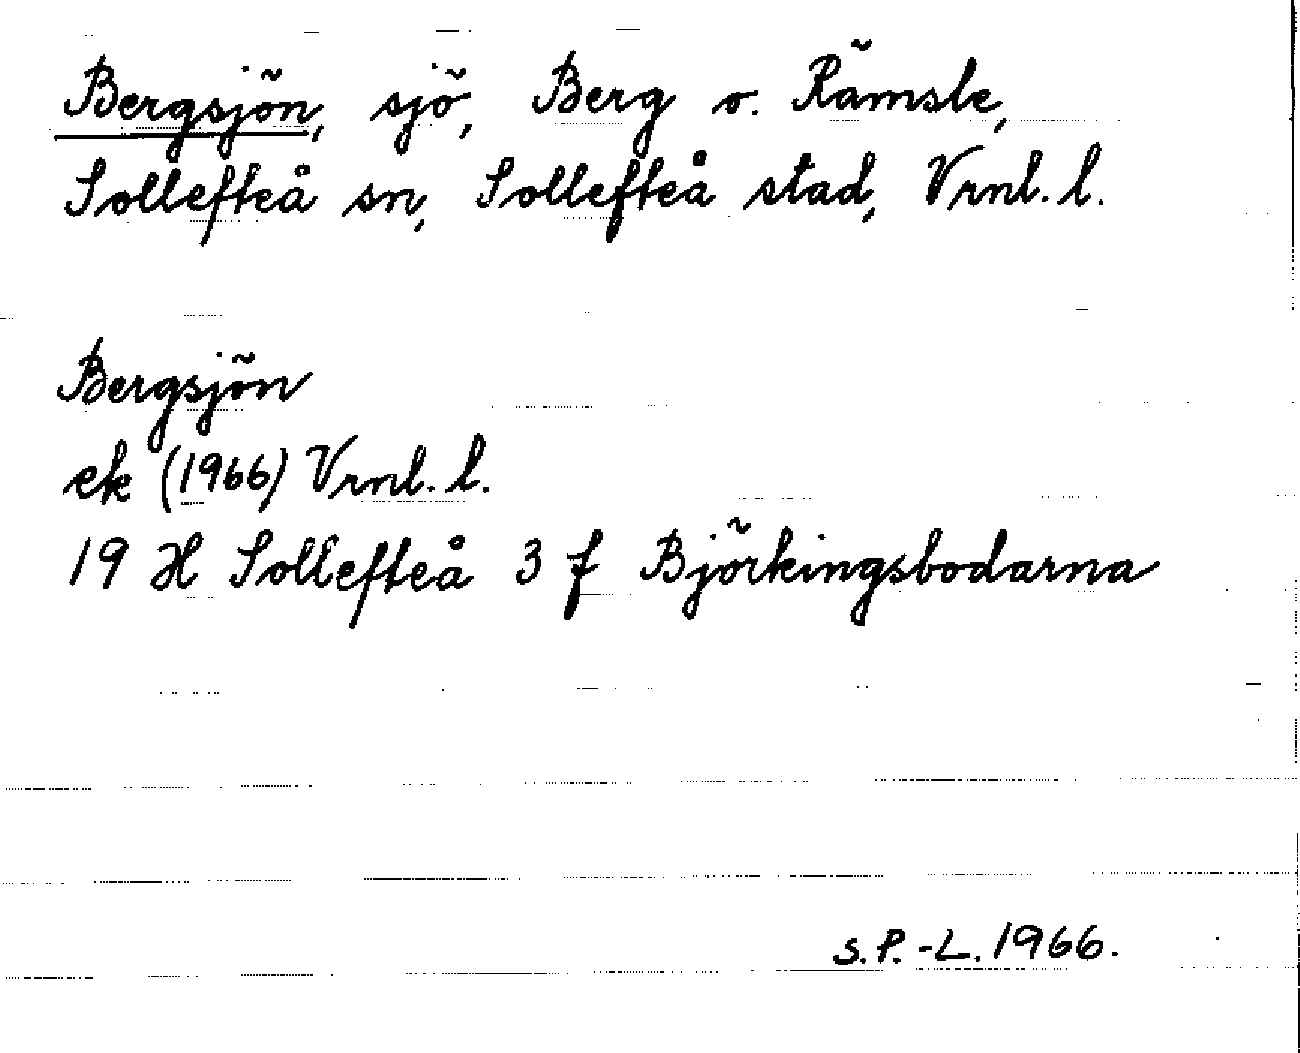 Bergsjön, sjö, Berg o. Rämsle,
Sollefteå sn, Sollefteå stad, Vrnl. l.
Bergsjön
ek (1966) Vrnl. l.
19 H Sollefteå 3 f Björkingsbodarna
S.P.-L. 1966.